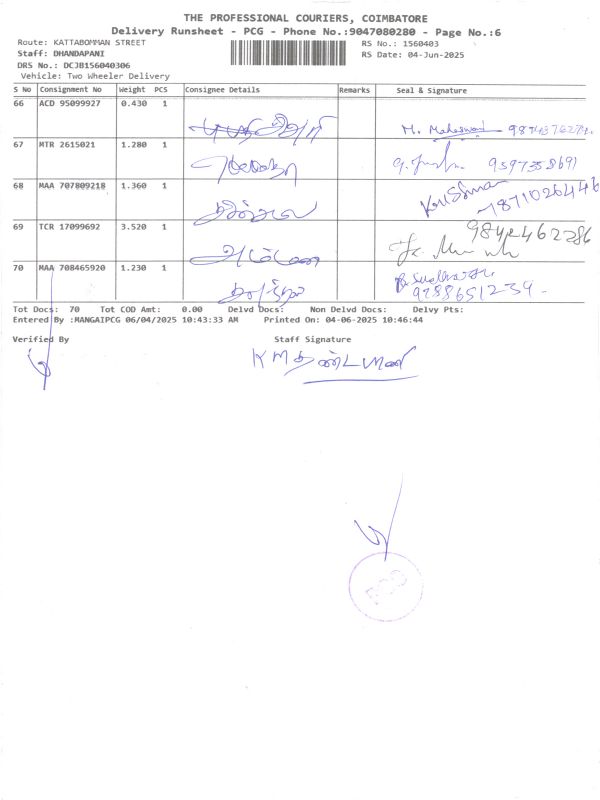 THE PROFESSIONAL COURIERS, COIMBATORE
Delivery Runsheet - PCG - Phone No.:9047080280 - Page No.:6
Route: KATTABOMMAN STREET
RS No.: 1560403
Staff: DHANDAPANI
RS Date: 04-Jun-2025
DRS No.: DCJB156040306
Vehicle: Two Wheeler Delivery
S No Consignment No Weight PCS Consignee Details Remarks Seal & Signature
66 ACD 95099927 0.430 1 M. Maheswari
67 MTR 2615021 1.280 1 9597358691
68 MAA 707809218 1.360 1 Krishnan
7871026446
69 TCR 17099692 3.520 1 9842462286
70 MAA 708465920 1.230 1
9288651234
Tot Docs: 70 Tot COD Amt: 0.00 Delvd Docs: Non Delvd Docs: Delvy Pts:
Entered By :MANGAIPCG 06/04/2025 10:43:33 AM Printed On: 04-06-2025 10:46:44
Verified By Staff Signature
POD